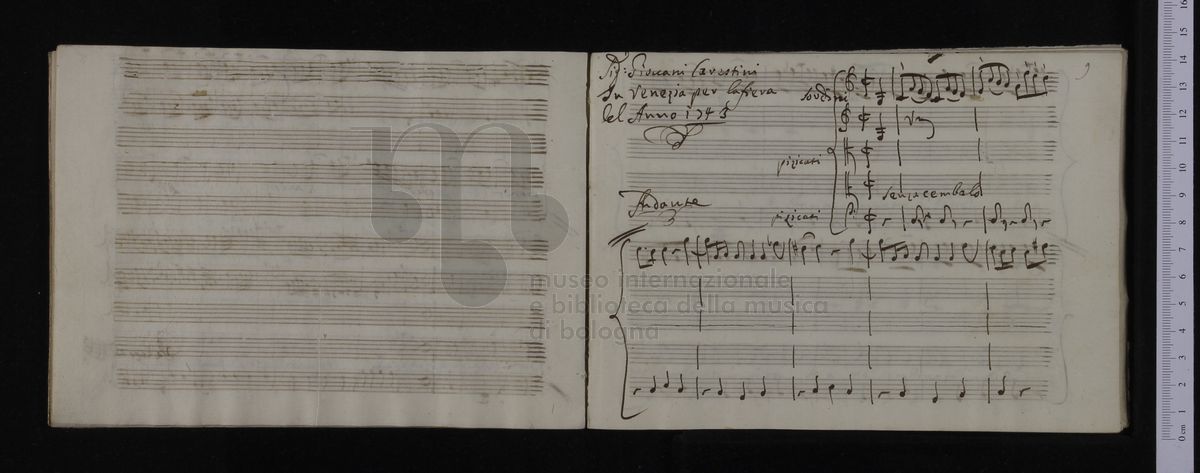 Sig: Giovani Carestini
In Venezia per la fiera
del Anno 1743
Sordini
Vni
pizicati
senza cembalo
Andante
pizicati
museo internazionale
e biblioteca della musica
di bologna
0 cm 1 2 3 4 5 6 7 8 9 10 11 12 13 14 15 16